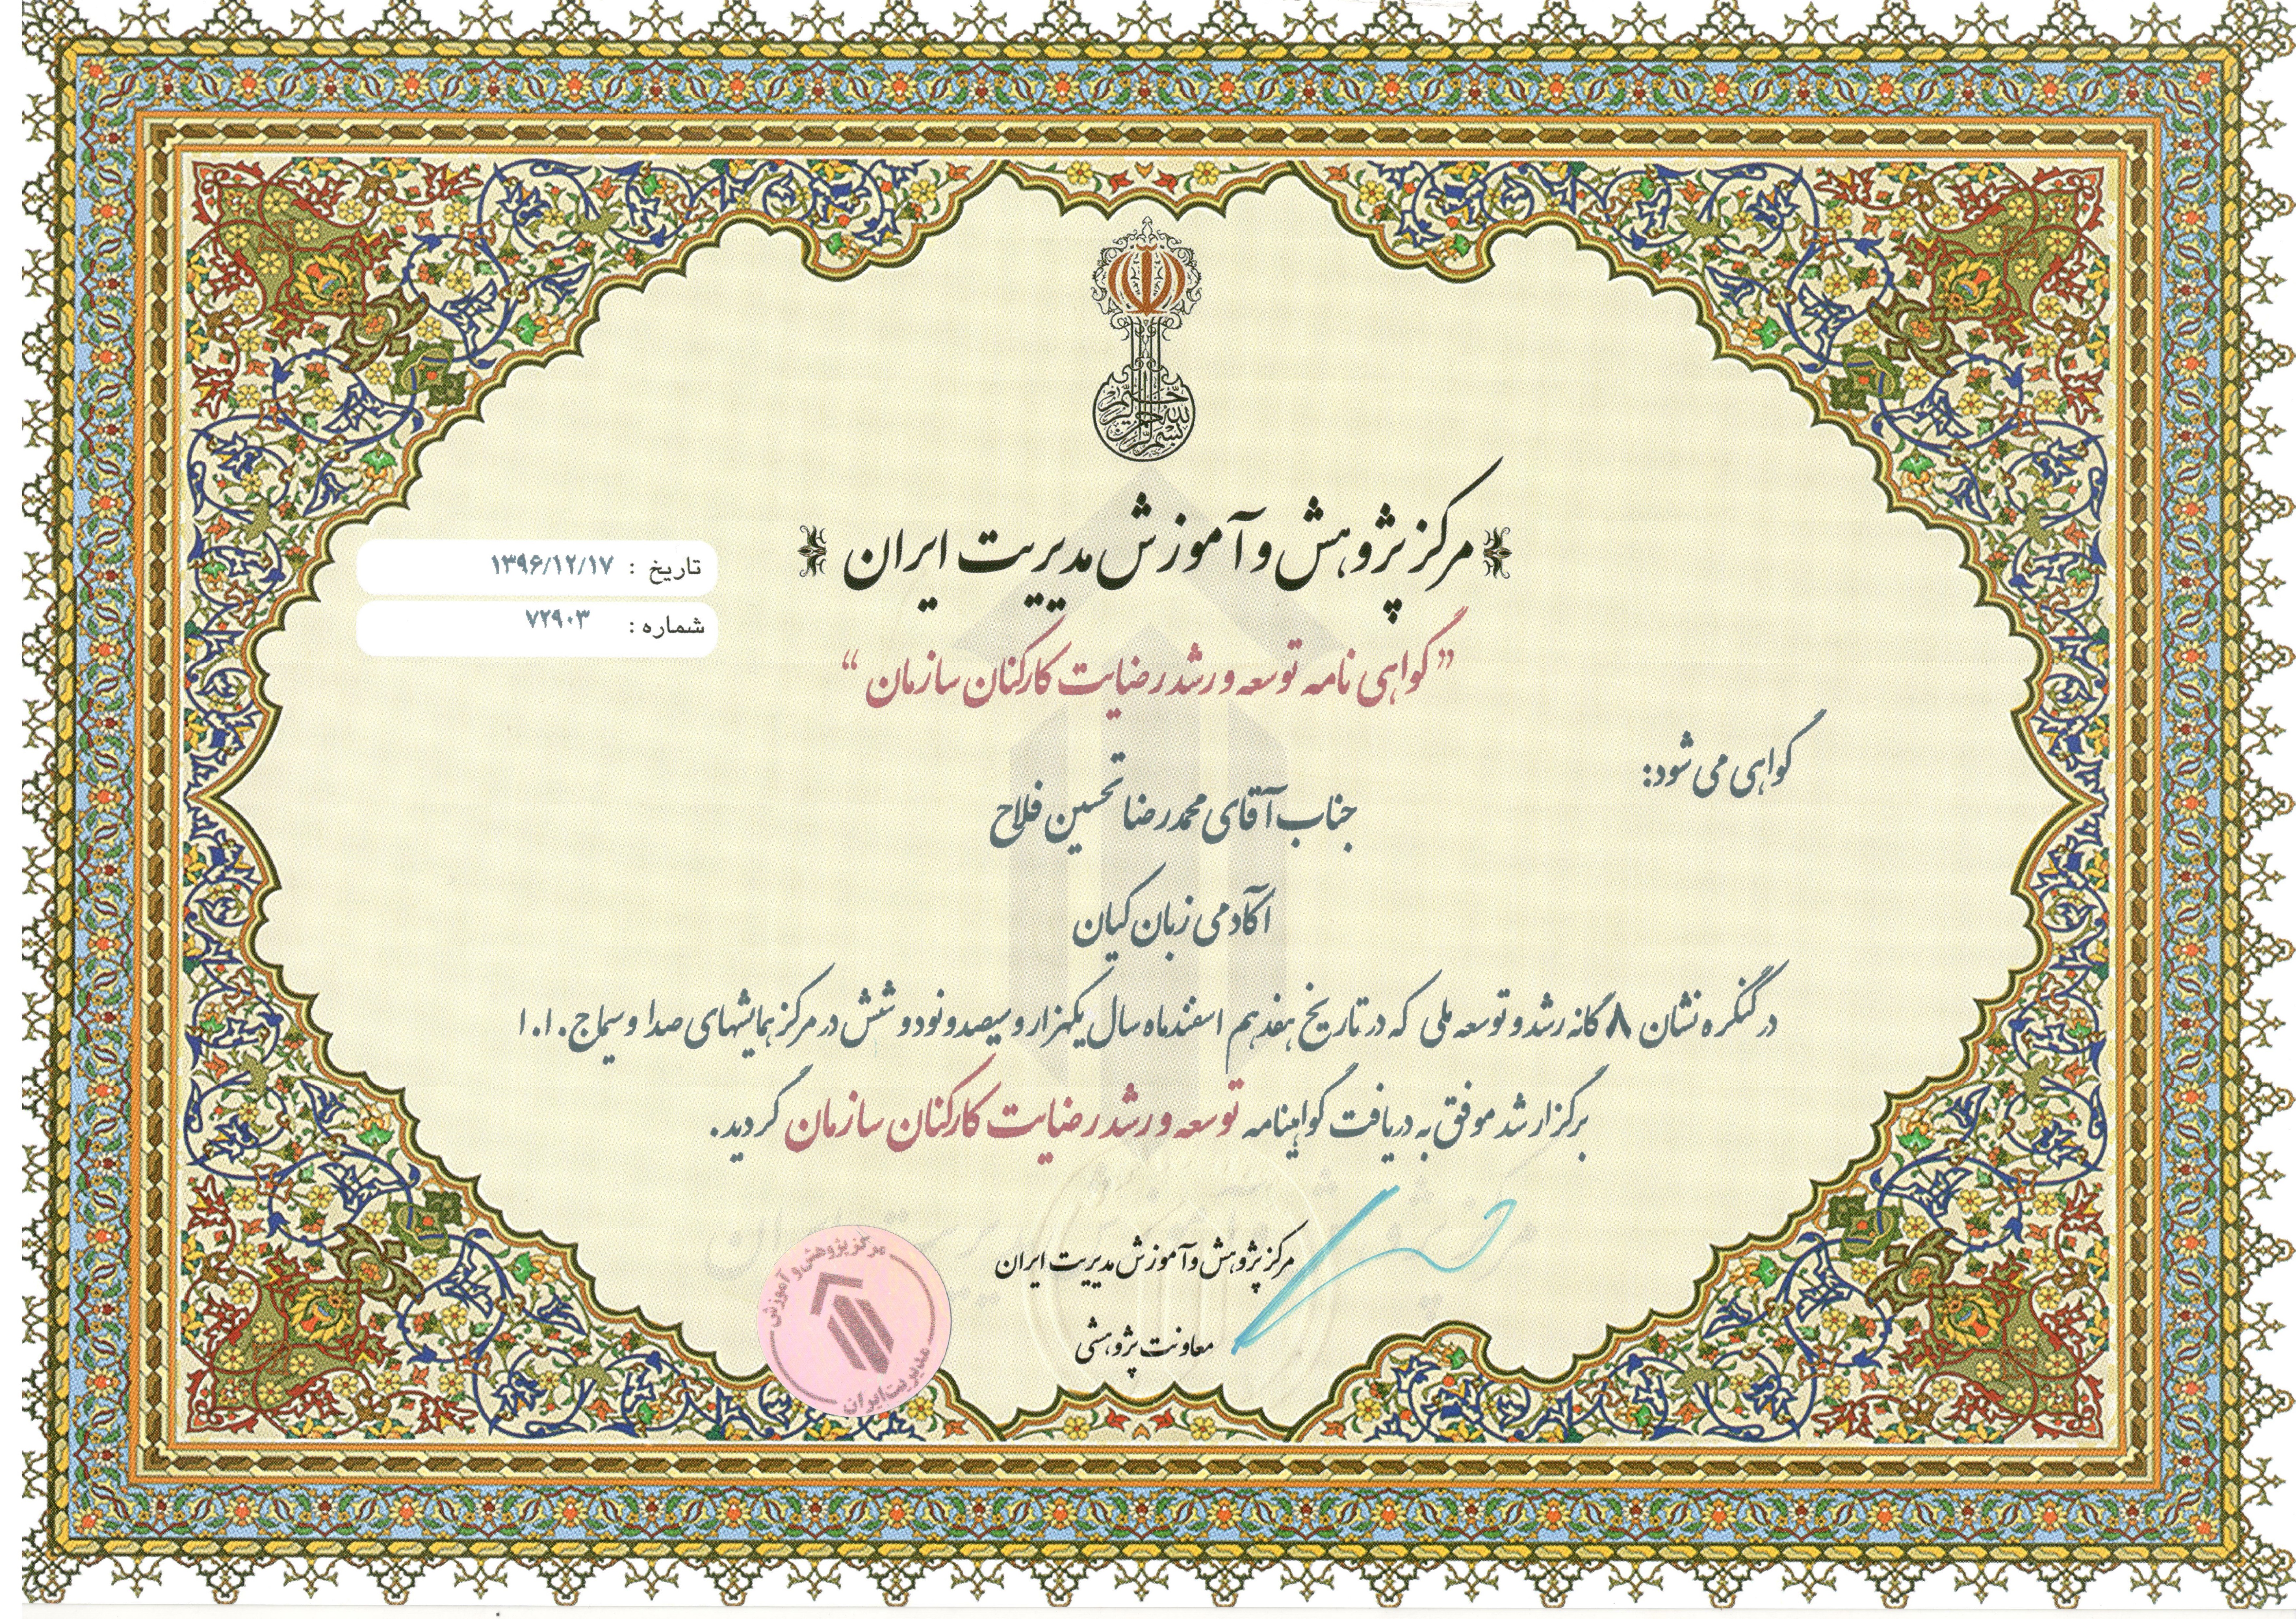 بسم الله الرحمن الرحیم
مرکز پژوهش و آموزش مدیریت ایران
تاریخ : ۱۳۹۶/۱۲/۱۷
شماره : ۷۲۹۰۳
"گواهی نامه توسعه و رشد رضایت کارکنان سازمان"
گواهی می شود:
جناب آقای محمدرضا تحسین فلاح
آکادمی زبان کیان
در کنگره نشان ۸ گانه رشد و توسعه ملی که در تاریخ هفدهم اسفند ماه سال یکهزار و سیصد و نود و شش در مرکز همایشهای صدا و سیما ج.ا.ا
برگزار شد موفق به دریافت گواهینامه توسعه و رشد رضایت کارکنان سازمان گردید.
مرکز پژوهش و آموزش مدیریت ایران
مرکز پژوهش و آموزش مدیریت ایران
معاونت پژوهشی
مرکز پژوهش و آموزش
مدیریت ایران